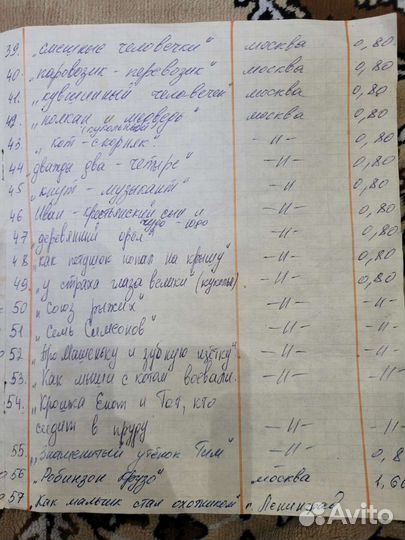 39. „Смешные человечки" москва 0,80
40. „паровозик - перевозик" москва 0,80
41. „кувшинный человечек" москва 0,80
42. „полкан и медведь" москва 0,80
(кукольный)
43. „кот - скорняк". -//- 0,80
44 „дважды два - четыре" -//- 0,80
45 „кнут - музыкант" -//- 0,80
46 Иван - крестьянский сын и -//- 0,80
чудо - юдо
47 „деревянный орёл" -//- 0,80
48 „как петушок попал на крышу" -//- 0,80
49 „у страха глаза велики (кукольн) -//- 0,80
50 „Союз рыжих" -//- -//-
51 „Семь Симеонов" -//- -//-
52. „Про Машеньку и зубную щётку" -//- -//-
53. „Как мыши с котом воевали. -//- -//-
54. „Крошка Енот и Тот, кто
сидит в пруду -//- -//-
55. „Знаменитый утёнок Тим" -//- 0,8
56 „Робинзон Крузо" москва 1,60
57 „Как мальчик стал охотником" г. Ленинград
Avito